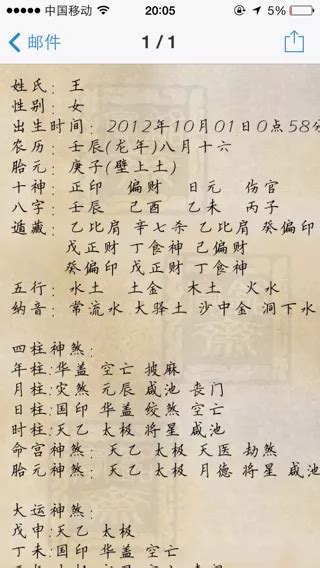 中国移动 20:05 5%
邮件 1 / 1
姓氏：王
性别：女
出生时间：2012年10月01日0点58分
农历：壬辰(龙年)八月十六
胎元：庚子(壁上土)
十神：正印 偏财 日元 伤官
八字：壬辰 己酉 乙未 丙子
遁藏：乙比肩 辛七杀 乙比肩 癸偏印
戊正财 丁食神 己偏财
癸偏印 戊正财 丁食神
五行：水土 土金 木土 火水
纳音：常流水 大驿土 沙中金 洞下水
四柱神煞：
年柱：华盖 空亡 披麻
月柱：灾煞 元辰 咸池 丧门
日柱：国印 华盖 绞煞 空亡
时柱：天乙 太极 将星 咸池
命宫神煞：天乙 太极 天医 劫煞
胎元神煞：天乙 太极 月德 将星 咸池
大运神煞：
戊申：天乙 太极
丁未：国印 华盖 空亡